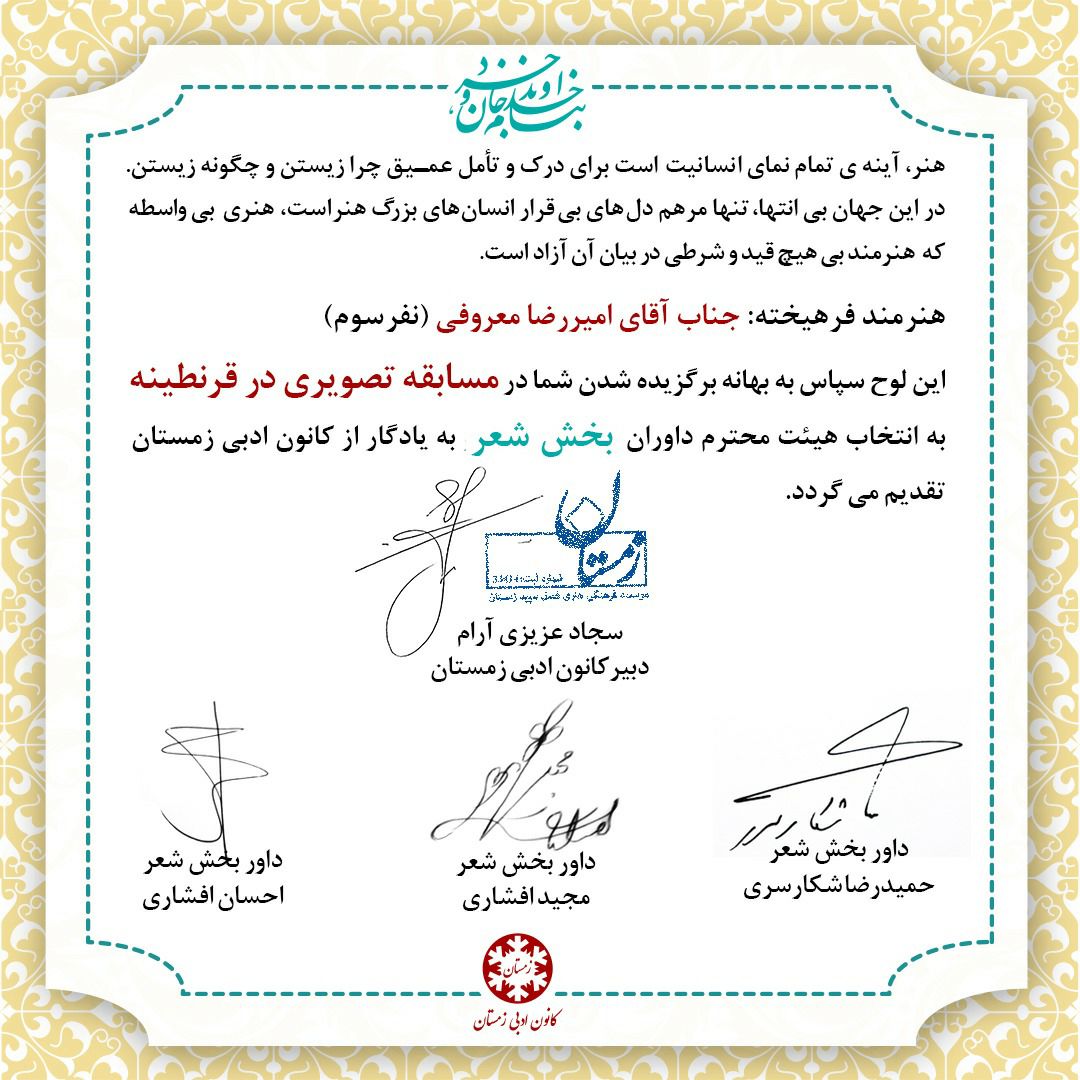 بنام خداوند جان و خرد
هنر، آینه ی تمام نمای انسانیت است برای درک و تأمل عمـیق چرا زیستن و چگونه زیستن.
در این جهان بی انتها، تنها مرهم دل های بی قرار انسان‌های بزرگ هنر است، هنری بی واسطه
که هنرمند بی هیچ قید و شرطی در بیان آن آزاد است.
هنرمند فرهیخته: جناب آقای امیررضا معروفی (نفر سوم)
این لوح سپاس به بهانه برگزیده شدن شما در مسابقه تصویری در قرنطینه
به انتخاب هیئت محترم داوران بخش شعر به یادگار از کانون ادبی زمستان
تقدیم می گردد.
زمستان
شماره ثبت:
موسسه فرهنگی هنری فصل سپید زمستان
سجاد عزیزی آرام
دبیر کانون ادبی زمستان
داور بخش شعر
حمیدرضا شکارسری
داور بخش شعر
مجید افشاری
داور بخش شعر
احسان افشاری
زمستان
کانون ادبی زمستان